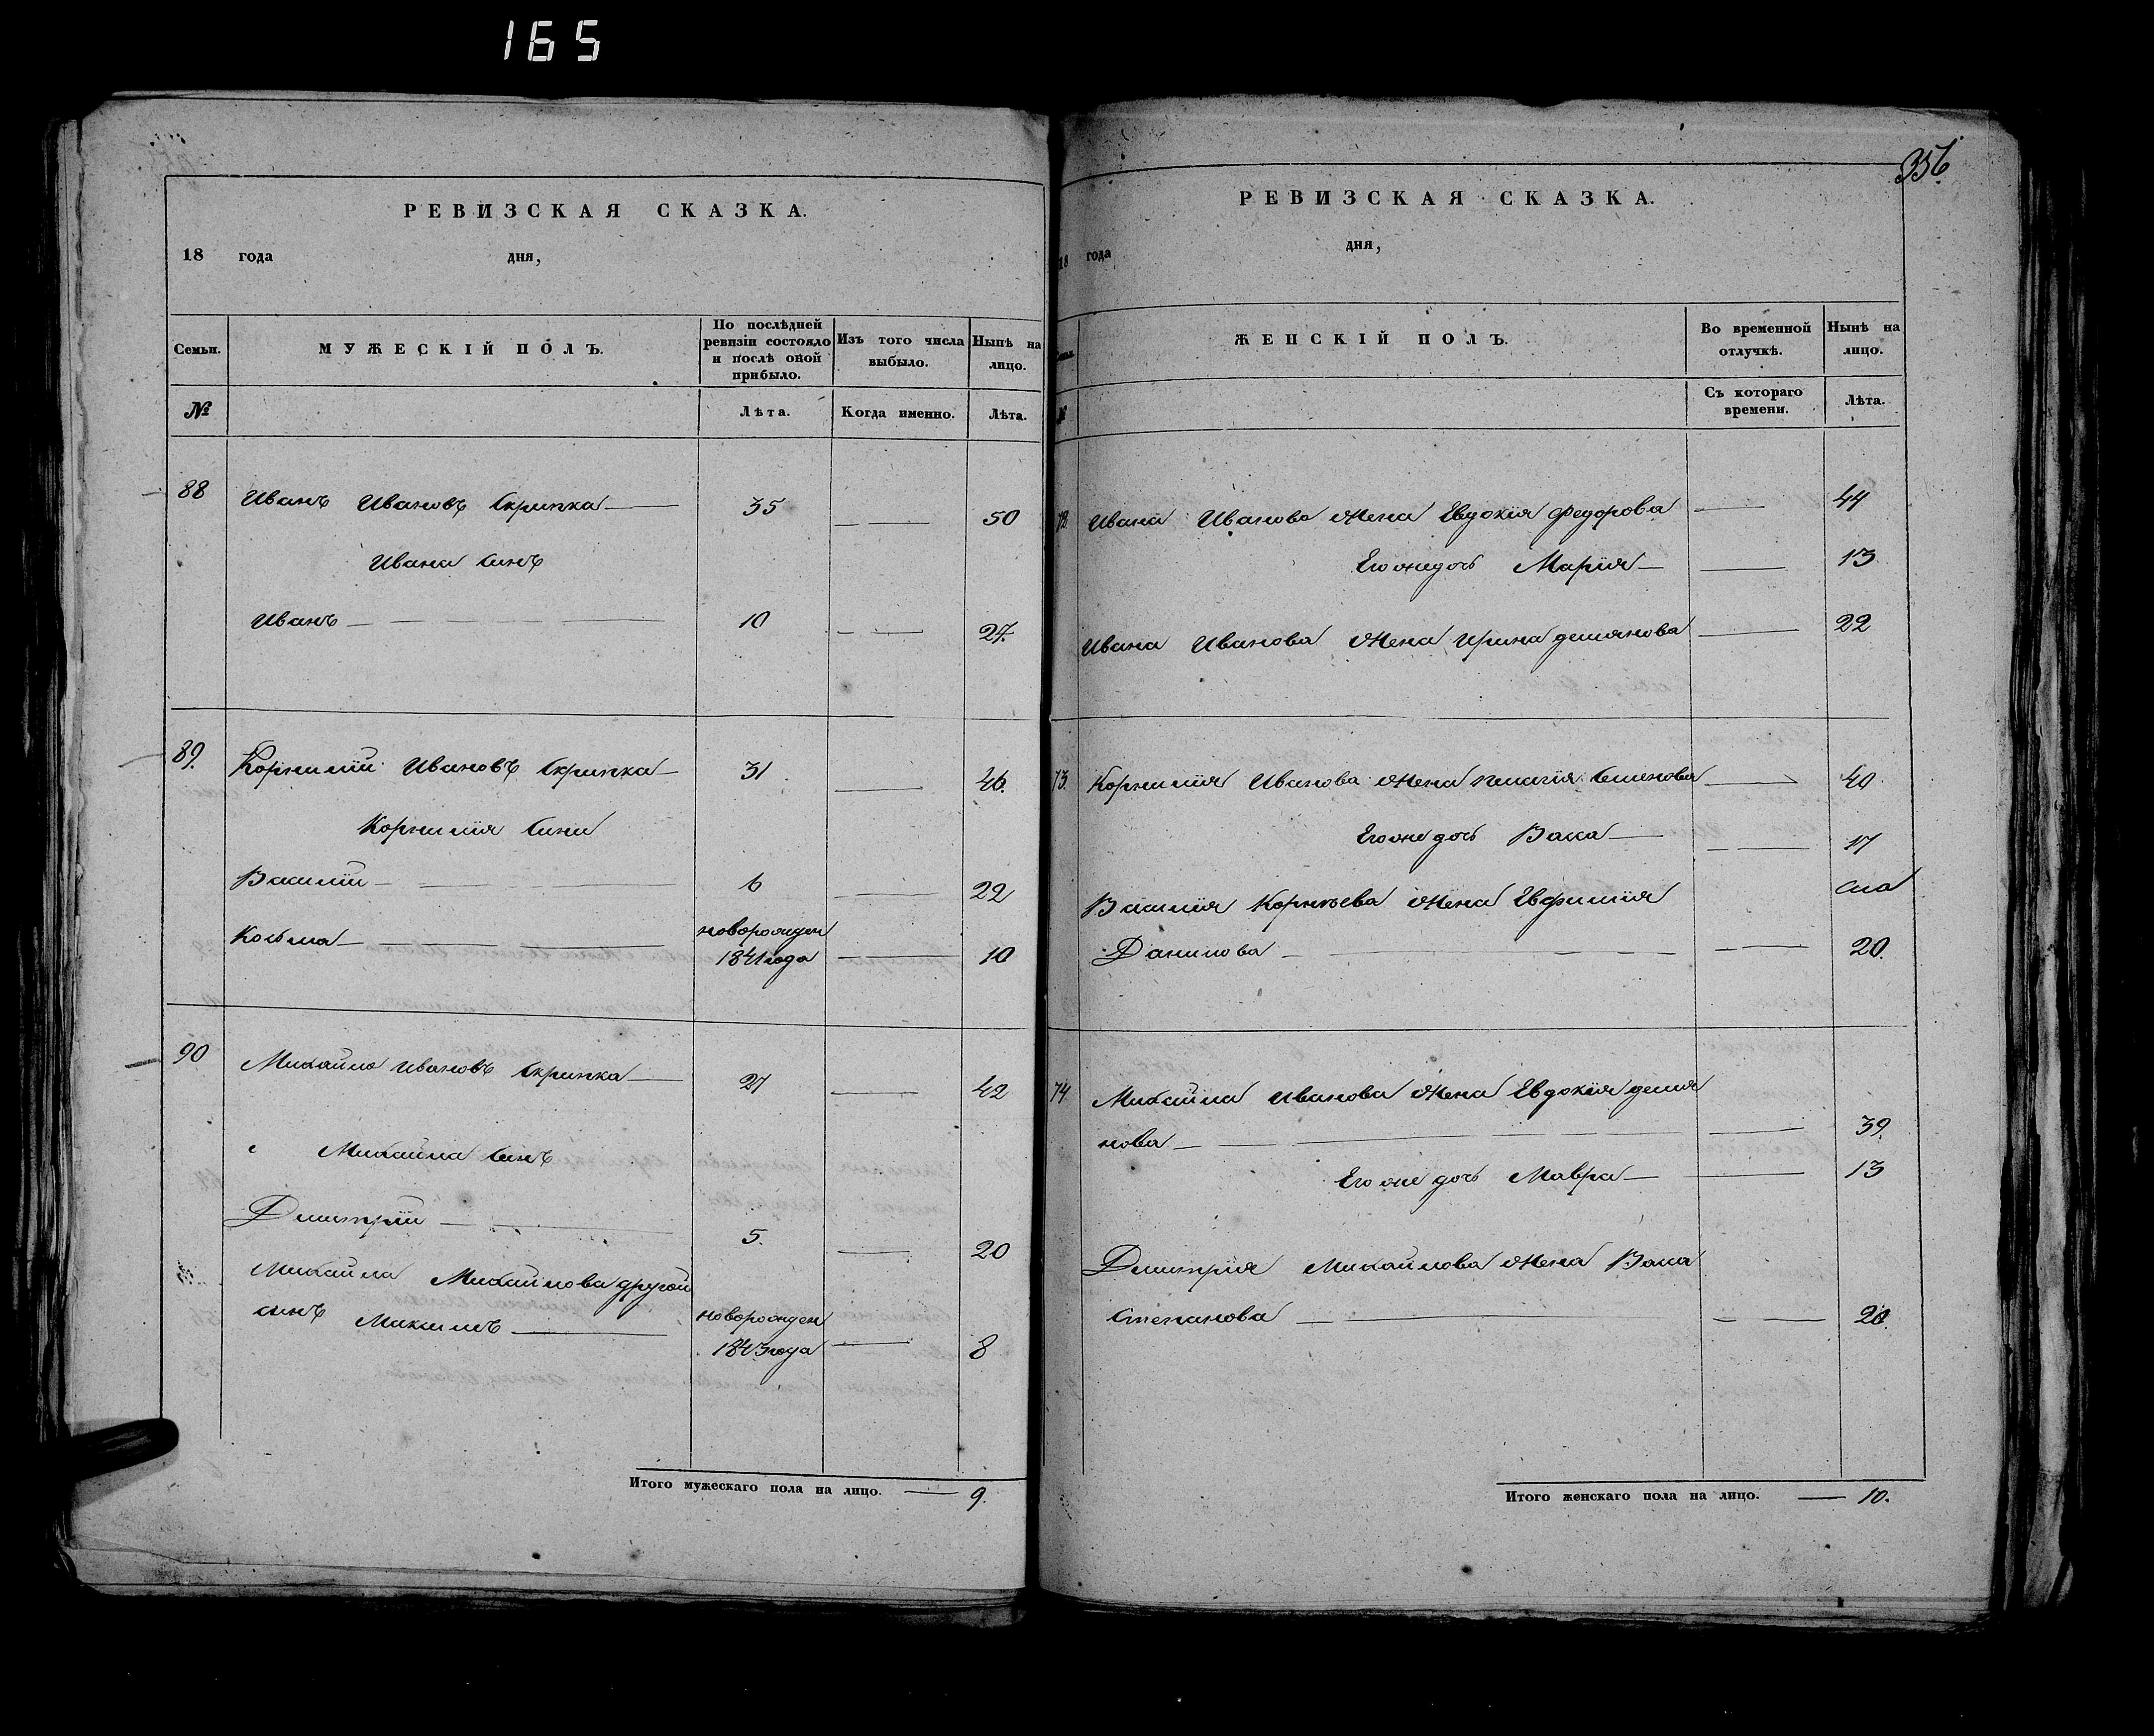 165
РЕВИЗСКАЯ СКАЗКА.
18 года дня,
Семьи. МУЖЕСКІЙ ПОЛЪ. По послѣдней ревизіи состояло и послѣ оной прибыло. Изъ того числа выбыло. Нынѣ на лицо.
№ Лѣта. Когда именно. Лѣта.
88 Иванъ Ивановъ Скрипка 35 50
Ивана Синъ
Иванъ 10 27.
89. Корнилій Ивановъ Скрипка 31 46.
Корнилія Сини
Василій 6 22
Козьма новорожден
1841 года 10
90 Михайло Ивановъ Скрипка 27 42
Михайла Синъ
Дмитрій 5. 20
Михайла Михайлова другой
синъ Максимъ новорожден
1843 года 8
Итого мужескаго пола на лицо. 9.
356
РЕВИЗСКАЯ СКАЗКА.
18 года дня,
Семьи. ЖЕНСКІЙ ПОЛЪ. Во временной отлучкѣ. Нынѣ на лицо.
№ Съ котораго времени. Лѣта.
72 Ивана Иванова жена Евдокія Федорова 44
Его же дочь Марія 13
Ивана Иванова жена Ирина Демянова 22
73. Корнилія Иванова жена Пелагія Семенова 40
Его же дочь Васа 17
Василія Корнѣева жена Евфимія
Данилова 20.
74 Михайла Иванова жена Евдокія Демя
нова 39.
Его же дочь Мавра 13
Дмитрія Михайлова жена Васа
Степанова 20.
Итого женскаго пола на лицо. 10.